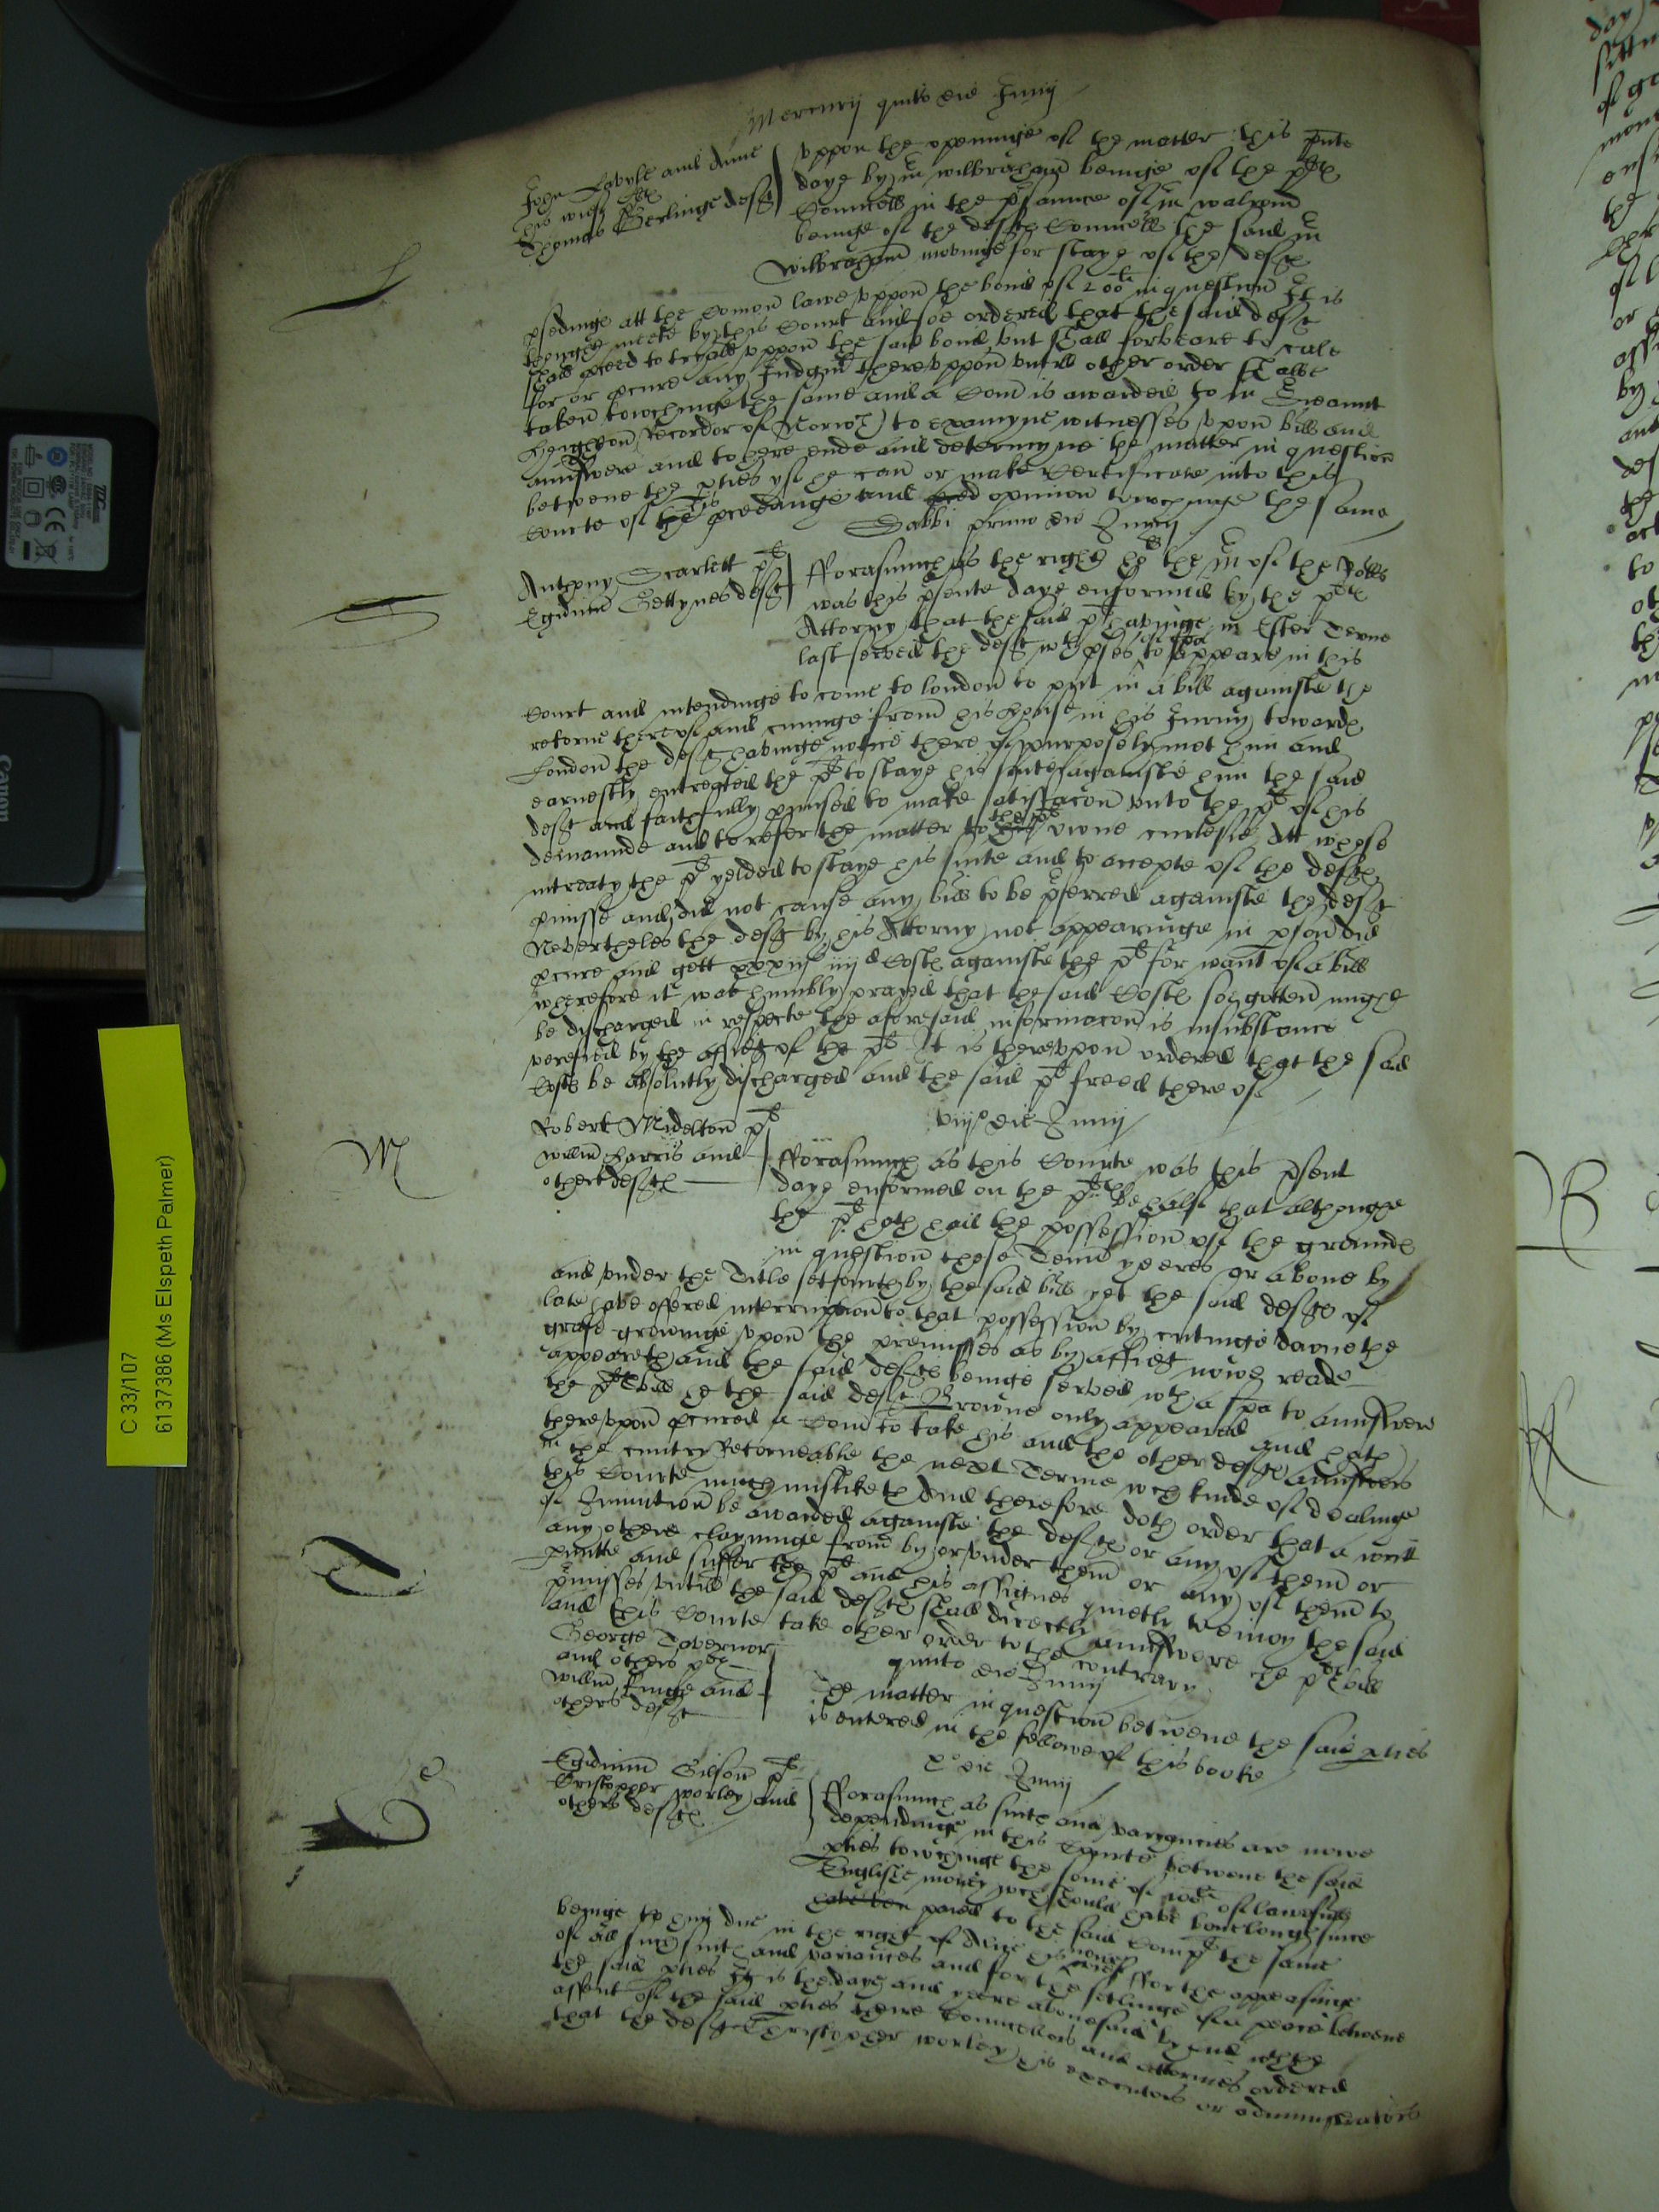 Mercurij quinto die Junij
John Lavyle and Anne
his wief pltes
Thomas Gerlinge deft
Uppon the openinge of the matter this pnte
daye by mr wilbraham beinge of the pltes
Councell in the psaunce of mr walrond
beinge of the deftes Councell the said mr
Wilbraham movinge for staye of the deftes
pcedinge att the Comon lawe uppon the bond of 200li in question It is
thought meete by this Court and soe ordered that the said deft
shall pceed to tryall uppon the said bond but shall forbeare to call
for or pcure any Judgmt thereuppon untill other order shalbe
taken towchinge the same and a Com is awarded to mr Sreaunt
Recordor of Norwch to examyne witnesses upon bill and
aunswere and to here ende and determyne the matter in question
betwene the pties yf he can or make Certificate into this
Courte of the pcedinge and opinion towchinge the same
Sabbi primo die Junij
Anthony Scarlett plt
Egidium Gettynes deft
fforasmuch as the right ho: the mr of the Rolls
was this psente daye enformed by the pltes
Attorny that the said plt havinge in Ester Terme
last served the deft wth pces of spa to appeare in this
Court and intendinge to come to london to put in a bill againste the
retorne thereof and cominge from his house in his Jurny towardes
London the deft havinge notice there of purposely met him and
earnestly entreated the plt to staye his suite againste him the said
deft and faithfully pmised to make satisfacon unto the plt of his
demaunde and to refer the matter to the plts owne curtesie Att whose
intreaty the plt yelded to staye his suite and to accepte of the deftes
pmisse and did not cause any bill to be pferred againste the deft
Nevertheles the deft by his Attorny not appearinge in pson did
pcure and gett xxxiijs iiijd Costes againste the plt for want of a bill
wherefore it was humbly prayed that the said Costes soe gotten might
be discharged in respecte the aforesaid informacon is in substance
verefied by the affidt of the plt It is thereuppon ordered that the said
Costs be absolutly discharged and the said plt freed thereof
viijo die Junij
Robert Midelton plt
willm Harris and
others deftes
fforasmuch as this Courte was this psent
daye enformed on the pltes behalf that althoughe
the plt hath had the possession of the groundes
in question these Tenn yeeres or above by
and under the Title set fourth by the said bill yet the said deftes of
late have offered interruption to that possession by cuttinge downe the
grase growinge upon the premisses as by affidt nowe reade
appeareth and the said deftes beinge served wth a spa to aunswere
the pltes bill he the said deft Browne only appeared and hath
thereupon pcured a Com to take his and the other deftes aunsweres
in the cuntry Retorneable the next Terme wch kinde of dealinge
this Courte much misliketh And therefore doth order that a writt
of Iniunction be awarded againste the deftes or any of them or
any othere clayminge from by or under them or any of them to
pmitte and suffer the plt and his assignes quietly to enioy the said
pmisses untill the said deftes shall directly aunswere the pltes bill
and this Courte take other order to the contrary
quinto die Junij
George Tovernor
and others pltes
willm Kinge and
others deft
The matter in question betwene the said pties
is entered in the fellowe of this booke
xo die Junij
Egidium Gilson plt
Cristopher worley and
others deftes
fforasmuch as suite and varyances are nowe
dependinge in this Courte betwene the said
pties towchinge the some of 100li of lawfull
Englishe money wch should have bene longe since
payed to the said Complt the same
beinge to him due in the right of Alice his nowe wief ffor the appeasinge
of all such suites and variances and for the setlinge of a peace betwene
the said pties It is the daye and yeere abovesaid by and wth the
assent of the said pties there Councellors and attornies ordered
that the deft Christopher worley his executors or administrators
C 33/107
6137386 (Ms Elspeth Palmer)
Canon